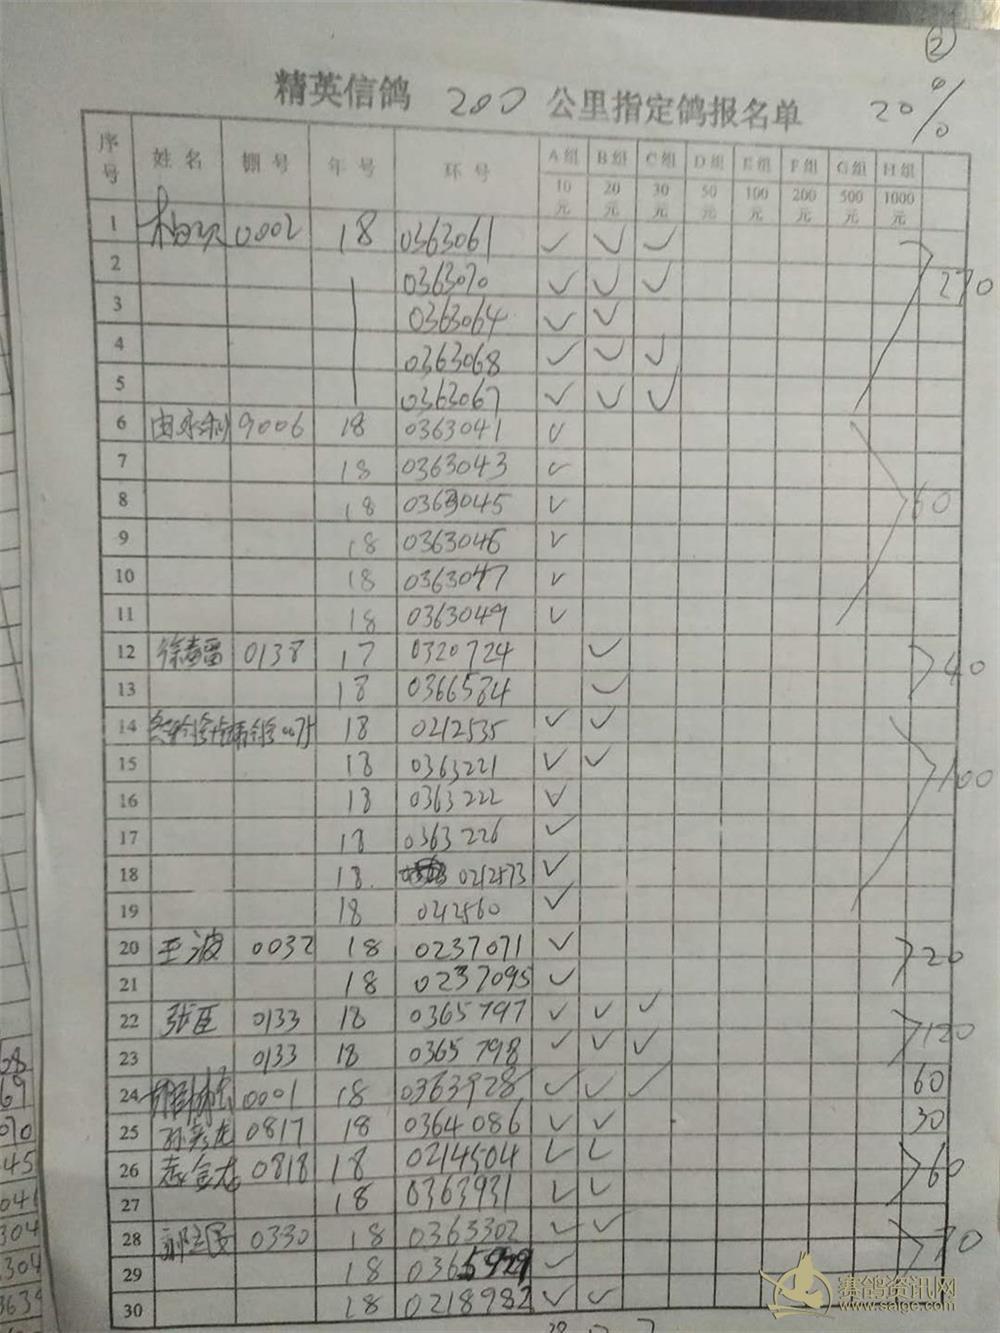 ②
精英信鸽 200 公里指定鸽报名单 20%
序号 姓名 棚号 年号 环号 A组 B组 C组 D组 E组 F组 G组 H组
10元 20元 30元 50元 100元 200元 500元 1000元
1 0002 18 0363061 ✓ ✓ ✓
2 0363070 ✓ ✓ ✓ 270
3 0363064 ✓ ✓
4 0363068 ✓ ✓ ✓
5 0363067 ✓ ✓ ✓
6 由永利 9006 18 0363041 ✓
7 18 0363043 ✓
8 18 0363045 ✓ 60
9 18 0363046 ✓
10 18 0363047 ✓
11 18 0363049 ✓
12 0138 17 0320724 ✓ 40
13 18 0366584 ✓
14 18 0212535 ✓ ✓
15 18 0363221 ✓ ✓ 100
16 18 0363222 ✓
17 18 0363226 ✓
18 18 0212573 ✓
19 18 0212560 ✓
20 王波 0032 18 0237071 ✓ 20
21 18 0237095 ✓
22 张臣 0133 18 0365797 ✓ ✓ ✓ 120
23 0133 18 0365798 ✓ ✓ ✓
24 0001 18 0363928 ✓ ✓ ✓ 60
25 孙彦龙 0817 18 0364086 ✓ ✓ 30
26 0818 18 0214504 ✓ ✓ 60
27 18 0363931 ✓ ✓
28 0330 18 0363302 ✓ ✓ 70
29 18 0365929 ✓
30 18 0218982 ✓ ✓
赛鸽资讯网
www.saige.com